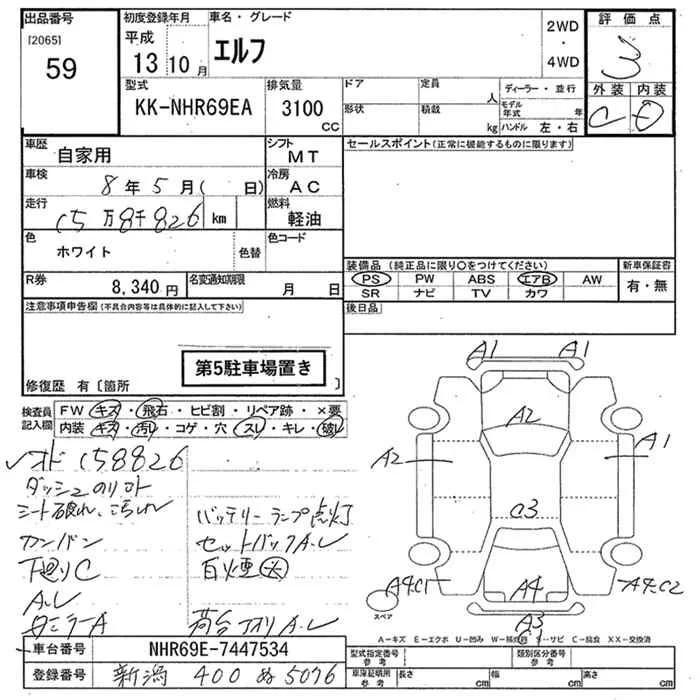 出品番号 初度登録年月 車名・グレード 2WD・4WD 評価点
[2065] 59 平成 13 10月 エルフ 3
型式 KK-NHR69EA 排気量 3100 CC ドア 形状 定員 人 積載 kg ディーラー・並行 モデル年式 年 ハンドル 左・右 外装 内装 C D
車歴 自家用 シフト MT セールスポイント(正常に機能するものに限ります)
車検 8年5月( 日) 冷房 AC
走行 15万8千826 km 燃料 軽油
色 ホワイト 色替 色コード
R券 8,340円 名変通知期限 月 日
装備品 (純正品に限り○をつけてください) 新車保証書
PS PW ABS エアB AW 有・無
SR ナビ TV カワ
注意事項申告欄(不具合内容等は具体的に記入して下さい) 後日品
第5駐車場置き
修復歴 有〔箇所 〕
検査員記入欄 FW キズ・飛石・ヒビ割・リペア跡・×要
内装 キズ・汚れ・コゲ・穴・スレ・キレ・破レ
オド 158826
シート破れ、汚れ バッテリーランプ点灯
カンバン セットバックA.L
下廻りC 白煙 大
A.L
荷台アオリA.L
A1 A1
A2
A2 A1
C3
A4.C1 A4 A4.C2
A3
スペア
A-キズ E-エクボ U-凹み W-補修跡 S-サビ C-腐食 XX-交換済
車台番号 NHR69E-7447534 型式指定番号 参考 類別区分番号 参考
登録番号 新潟 400 ぬ 5076 車庫証明用 参考 長さ cm 幅 cm 高さ cm